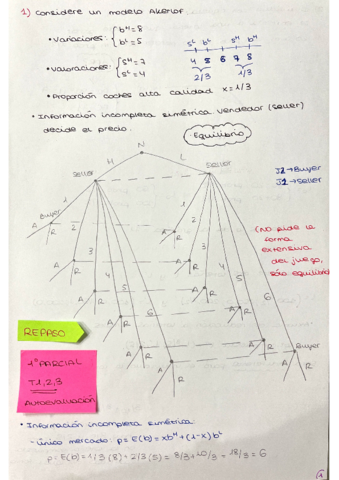 1) Considere un modelo Akerlof
• Variaciones: { bᴴ = 8
bᴸ = 5
• Valoraciones: { sᴴ = 7
sᴸ = 4
sᴸ bᴸ sᴴ bᴴ
4 5 6 7 8
2/3 1/3
• Proporción coches alta calidad x = 1/3
• Información incompleta simétrica vendedor (seller)
decide el precio.
Equilibrio
N
H L
Seller Seller
J1 → Buyer
J2 → Seller
1 2 3 4 5 6
1 2 3 4 5 6
Buyer
A R
A R
A R
A R
A R
A R
A R
A R
A R
A R
A R
Buyer
(No pide la
forma
extensiva
del juego,
sólo equilibrio)
REPASO
1º PARCIAL
T1,2,3
Autoevaluación
• Información incompleta simétrica:
- Único mercado: p = E(b) = xbᴴ + (1-x)bᴸ
p = E(b) = 1/3 (8) + 2/3 (5) = 8/3 + 10/3 = 18/3 = 6
1